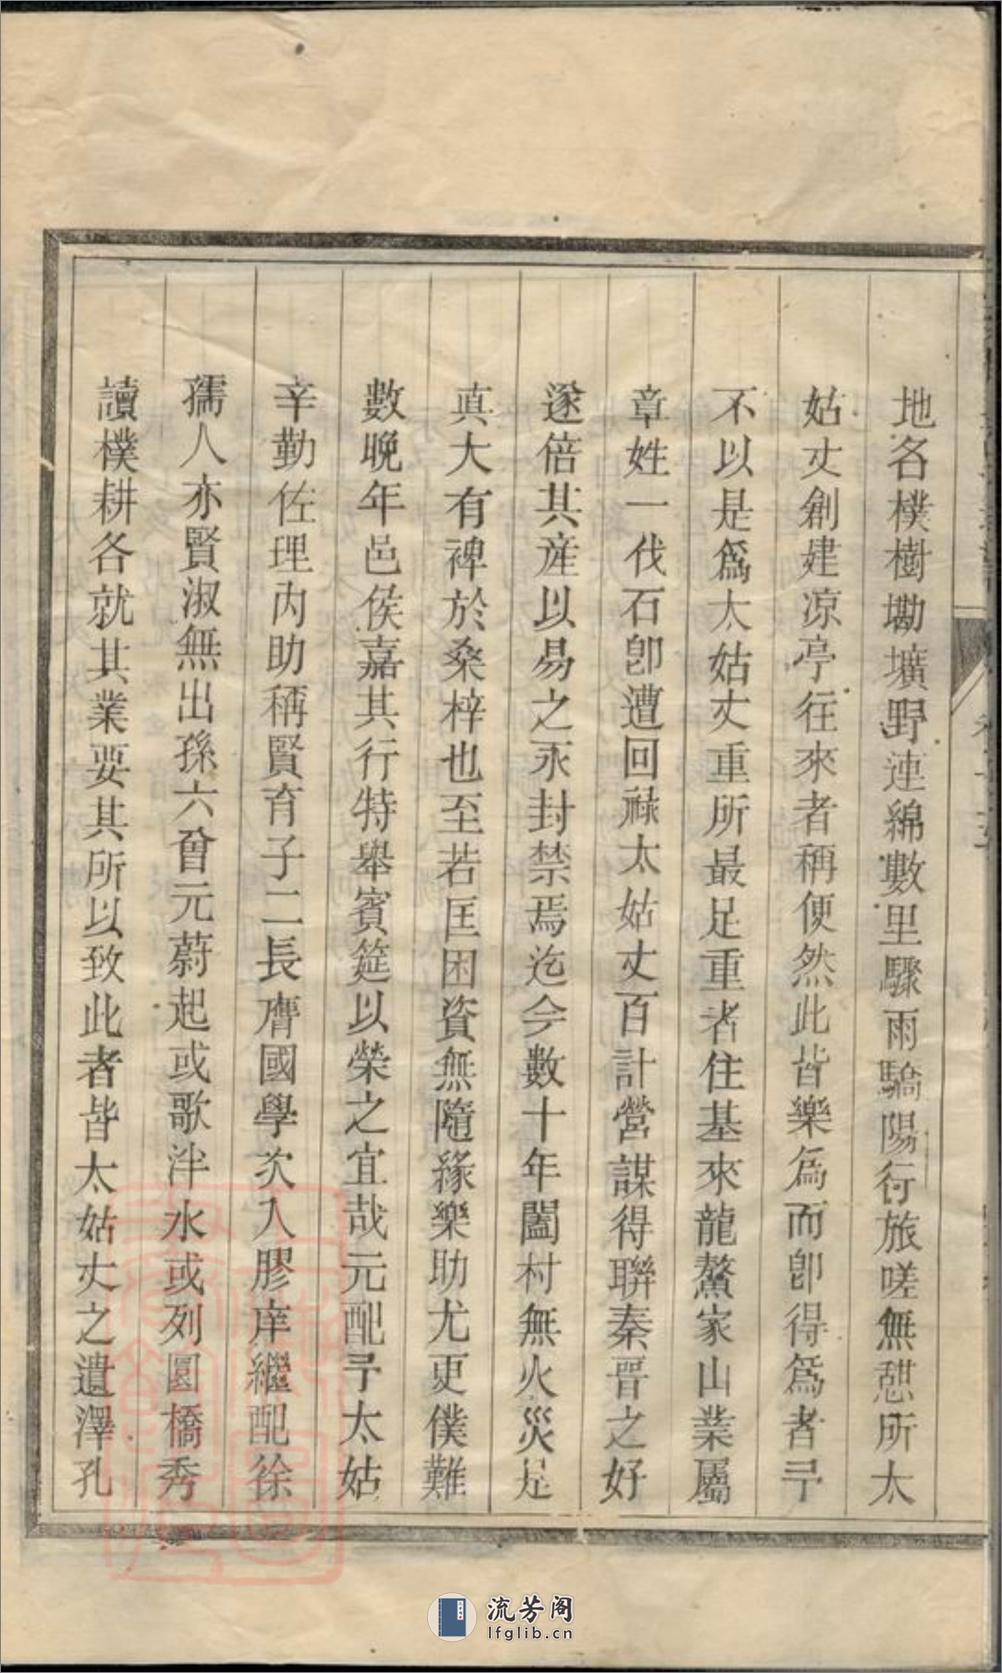 地名樸樹墈壙野連綿數里驟雨驕陽行旅嗟無憇所太
姑丈創建凉亭往來者稱便然此皆樂爲而卽得爲者予
不以是爲太姑丈重所最足重者住基來龍鰲家山業屬
章姓一伐石卽遭回祿太姑丈百計營謀得聯秦晋之好
遂倍其產以易之永封禁焉迄今數十年闔村無火災是
真大有裨於桑梓也至若匡困資無隨緣樂助尤更僕難
數晚年邑侯嘉其行特舉賓筵以榮之宜哉元配予太姑
辛勤佐理內助稱賢育子二長膺國學次入膠庠繼配徐
孺人亦賢淑無出孫六曾元蔚起或歌泮水或列圜橋秀
讀樸耕各就其業要其所以致此者皆太姑丈之遺澤孔
流芳阁
lfglib.cn